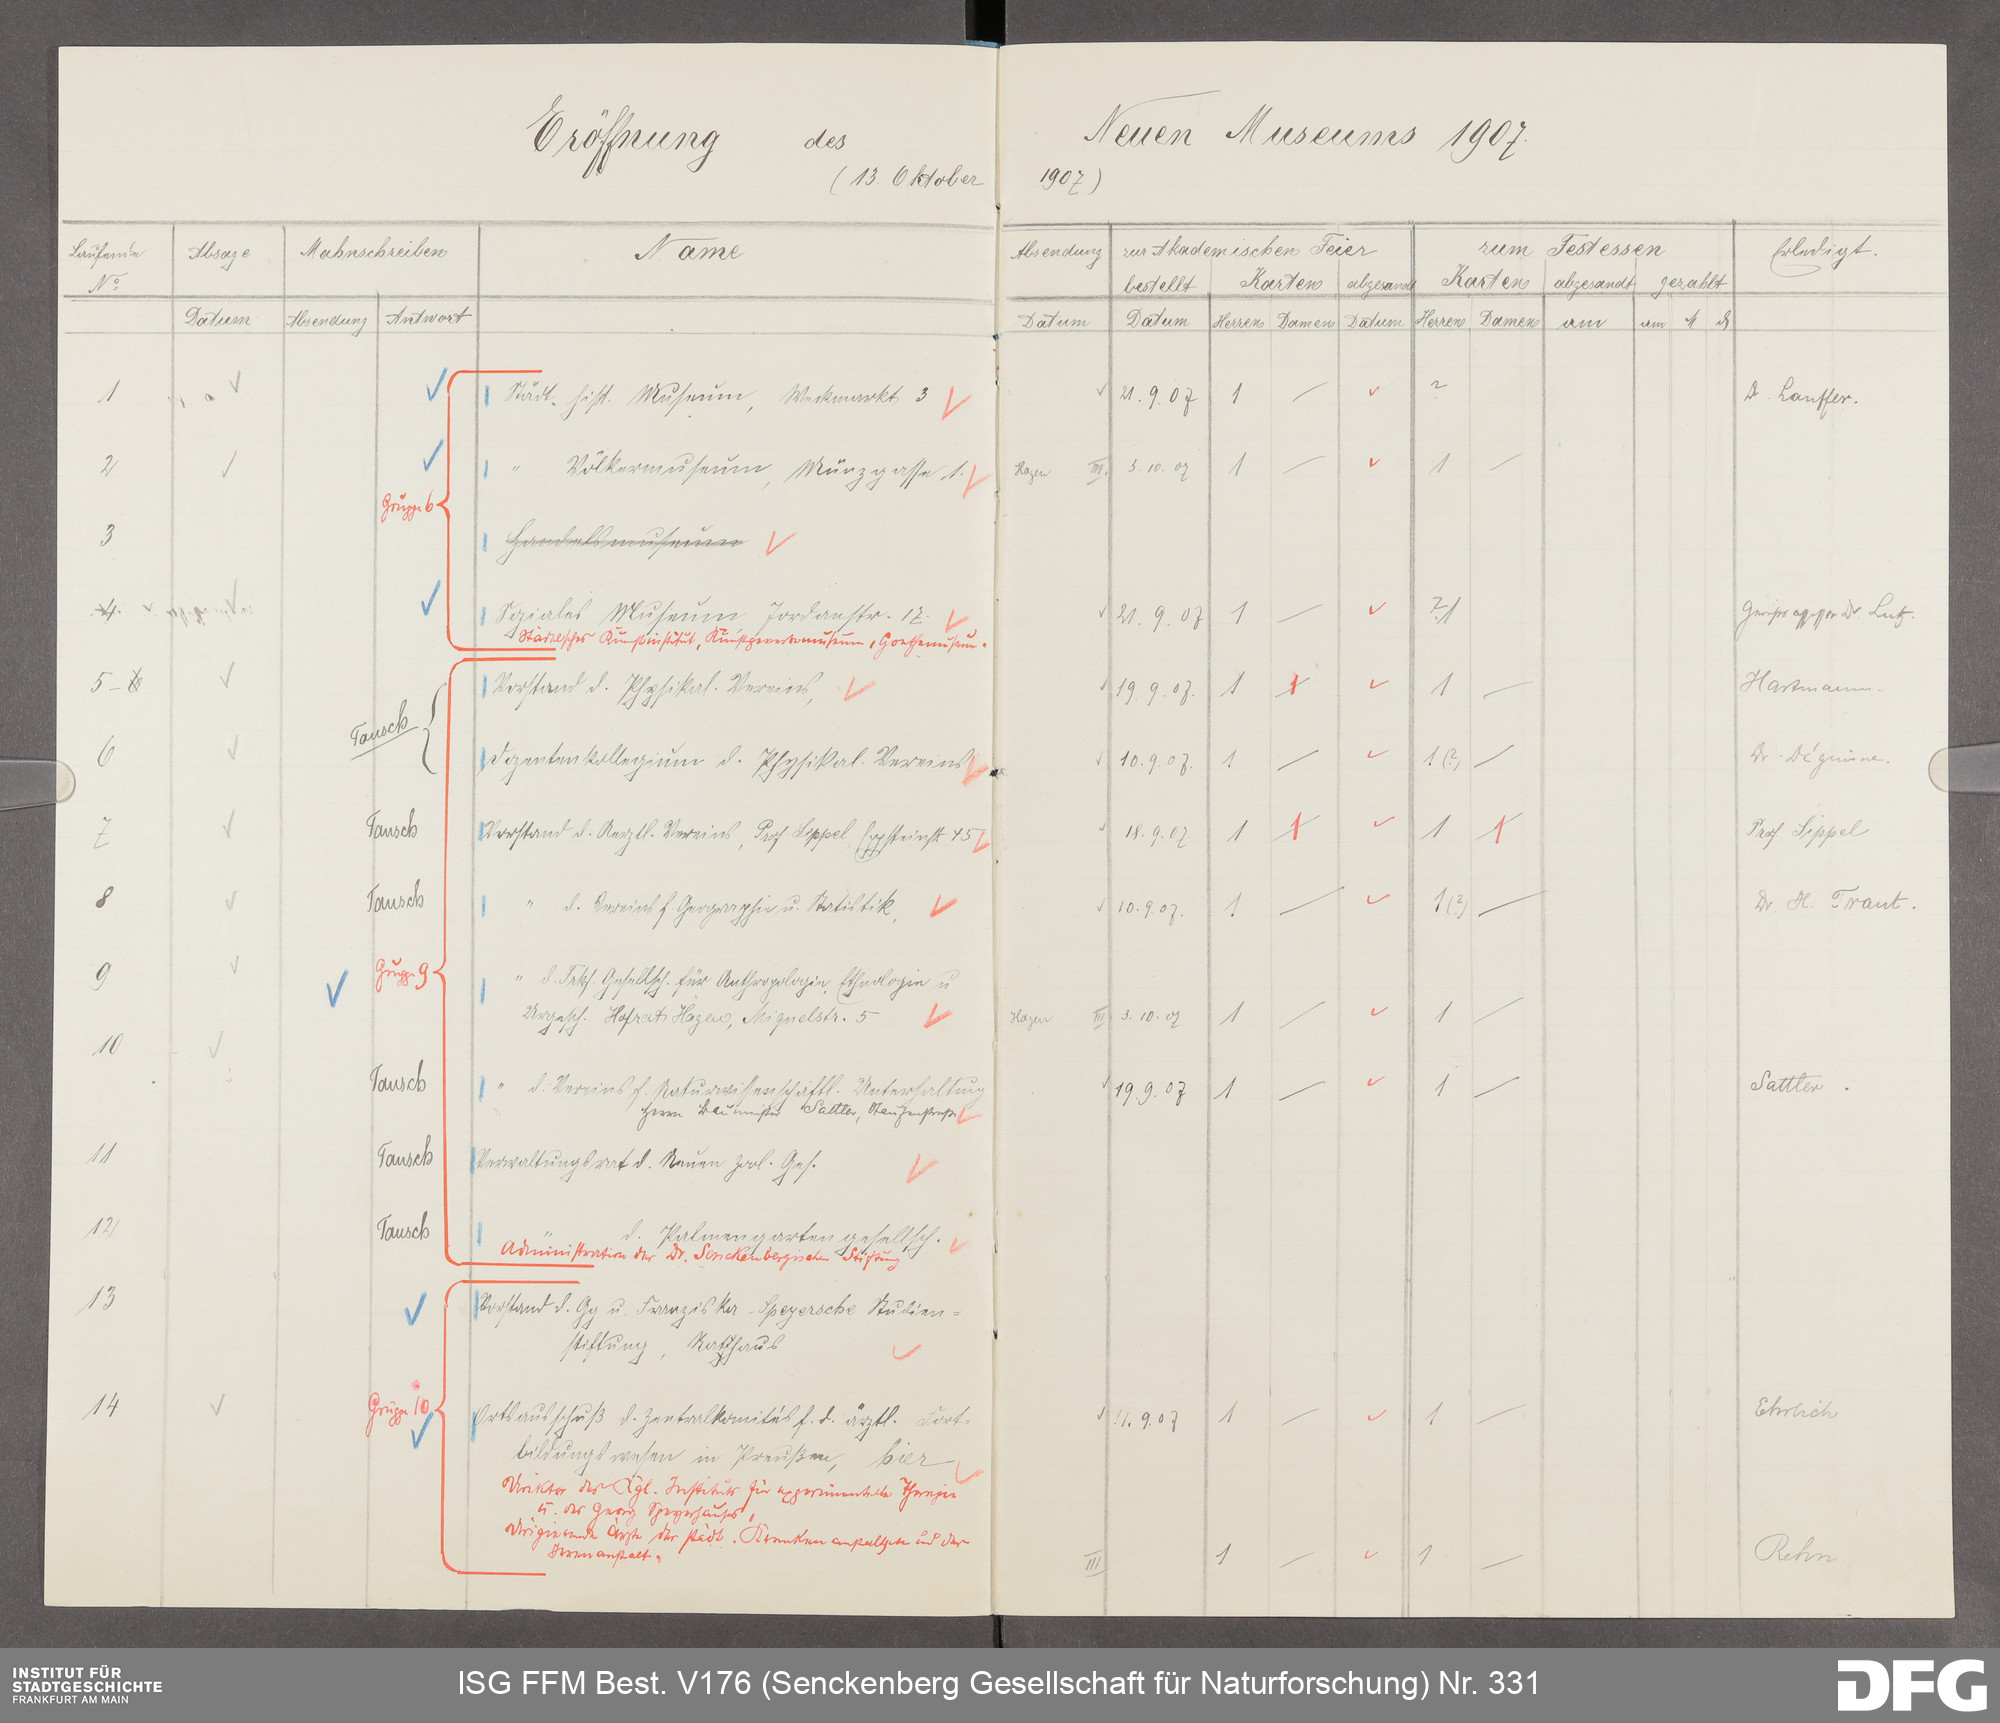 Eröffnung des Neuen Museums 1907.
(13. Oktober 1907)
Laufende Absage Mahnschreiben Name Absendung zur Akademischen Feier zum Festessen Erledigt.
No. bestellt Karten abgesandt Karten abgesandt gezahlt
Datum Absendung Antwort Datum Datum Herren Damen Datum Herren Damen am am M
1 ✓ ✓ Städt. hist. Museum, Weckmarkt 3 ✓ ✓ 21.9.07 1 — ✓ ? Dr. Lauffer.
2 ✓ ✓ " Völkermuseum, Münzgasse 1. ✓ Hagen III. 3.10.07 1 — ✓ 1 —
Gruppe 6
3 Handelsmuseum ✓
4. ✓ Soziales Museum Jordanstr. 17. ✓ ✓ 21.9.07 1 — ✓ ?1 Dr. Lutz.
Städelsches Kunstinstitut, Kunstgewerbemuseum, Goethemuseum.
5 ✓ Vorstand d. Physikal. Vereins, ✓ ✓ 19.9.07. 1 1 ✓ 1 — Hartmann.
Tausch
6 ✓ Dozentenkollegium d. Physikal. Vereins ✓ ✓ 10.9.07. 1 — ✓ 1(?) — Dr. Déguisne.
7 ✓ Tausch Vorstand d. Aerztl. Vereins, Prof Sippel, Eppsteinstr 45 ✓ ✓ 18.9.07 1 1 ✓ 1 1 Prof Sippel
8 ✓ Tausch " d. Vereins f. Geographie u. Statistik, ✓ ✓ 10.9.07. 1 — ✓ 1(?) — Dr. H. Traut.
9 ✓ ✓ Gruppe 9 " d. Frkf. Gesellsch. für Anthropologie, Ethnologie u
Urgesch. Hofrat Hagen, Miquelstr. 5 ✓ Hagen III 3.10.07 1 — ✓ 1 —
10 ✓ Tausch " d. Vereins f. Naturwissenschaftl. Unterhaltung ✓ 19.9.07 1 — ✓ 1 — Sattler.
Herrn Baumeister Sattler, ✓
11 Tausch Verwaltungsrat d. Neuen Zool. Ges. ✓
12 Tausch " d. Palmengartengesellsch. ✓
Administration der Dr. Senckenbergischen Stiftung
13 ✓ Vorstand d. Gg u. Franziska Speyersche Studien-
stiftung, Rathaus ✓
14 ✓ Gruppe 10 ✓ Ortsausschuß d. Zentralkomités f. d. ärztl. Fort-
bildungswesen in Preußen, hier ✓ ✓ 11.9.07 1 — ✓ 1 — Ehrlich
Direktor des Kgl. Instituts für experimentelle Therapie
u. des Georg Speyerhauses,
Dirigierende Ärzte der städt. Krankenanstalten und der
Irrenanstalt. III 1 — ✓ 1 — Rehn
INSTITUT FÜR
STADTGESCHICHTE
FRANKFURT AM MAIN
ISG FFM Best. V176 (Senckenberg Gesellschaft für Naturforschung) Nr. 331
DFG